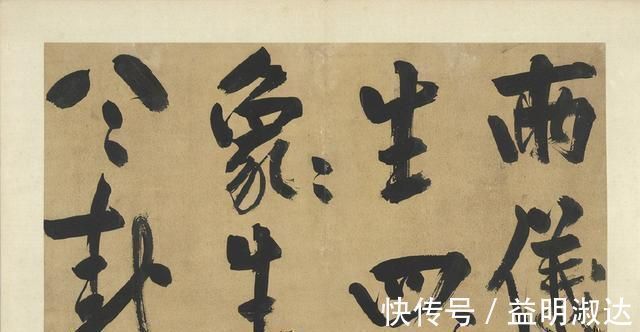 兩儀
生四
象〻生
八〻卦
快传号 / 益明淑达